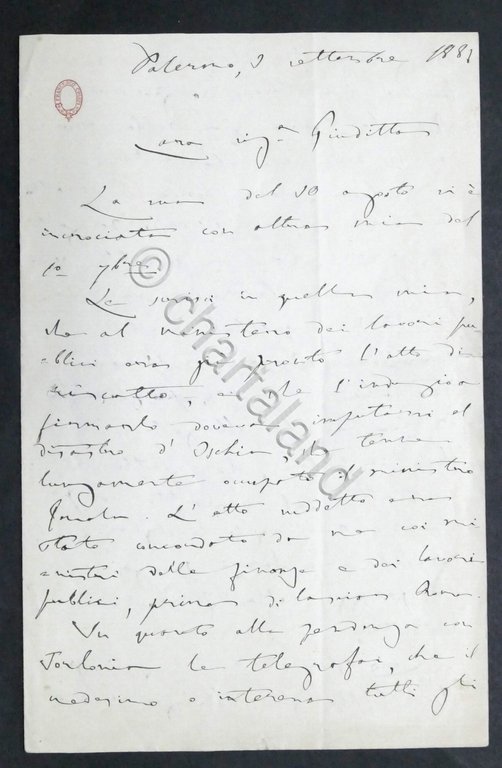 Palermo, 3 settembre 1883
Cara sig.ª Giuditta
La sua del 30 agosto si è
incrociata con altra mia del
1º 7bre.
Le scrissi in quella mia,
che al ministero dei lavori pu
blici era già pronto l'atto di
riscatto, e che l'indugio a
firmarlo doveva imputarsi al
disastro d'Ischia, che tenne
lungamente occupato il ministro
Genala. L'atto suddetto era
stato concordato da me coi mi
nisteri delle finanze e dei lavori
publici, prima di lasciare Roma.
In quanto alla pendenza con
Torlonia le telegrafai, che il
medesimo o interessa tutti gli
© chartaland